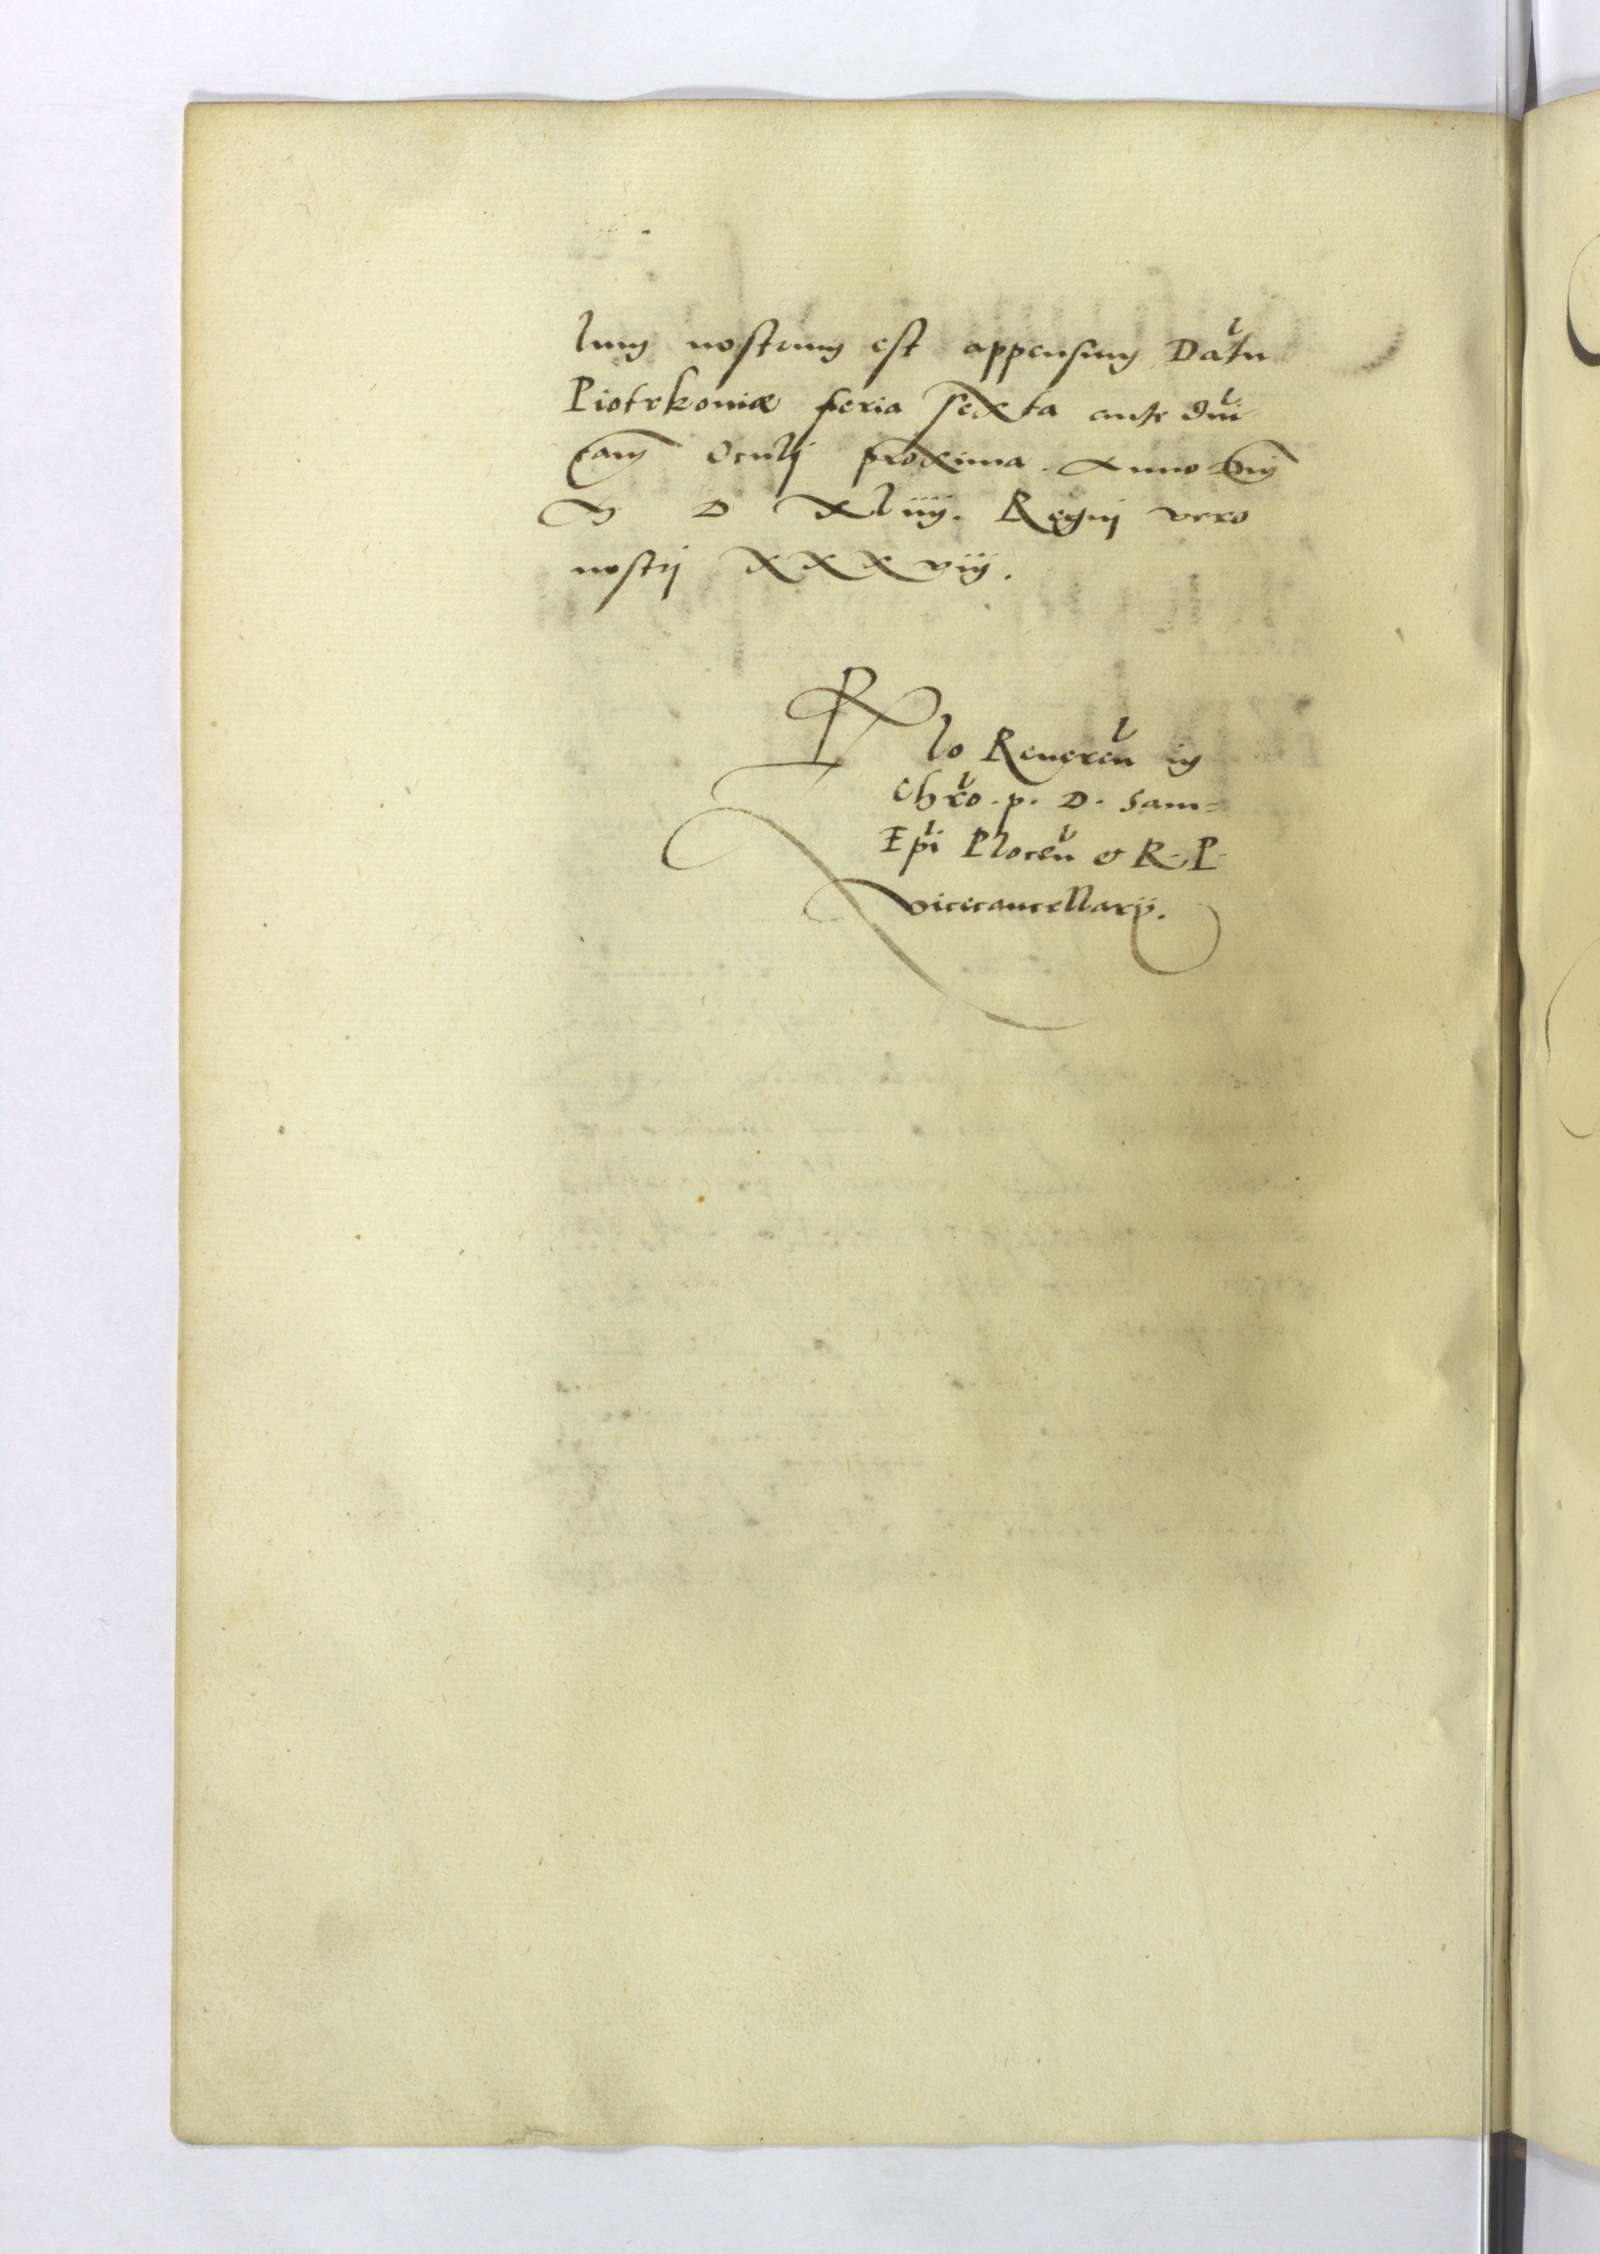 lum nostrum est appensum Datu
Piotrkoniæ feria sexta ante Dni
cam Oculi proxima. Anno Dni
M D Xliiij. Regni vero
nostri XXXviij.
Rlo Reveren in
Chro. p. D. Sam=
Epi Plocen et R. P.
vicecancellarij.